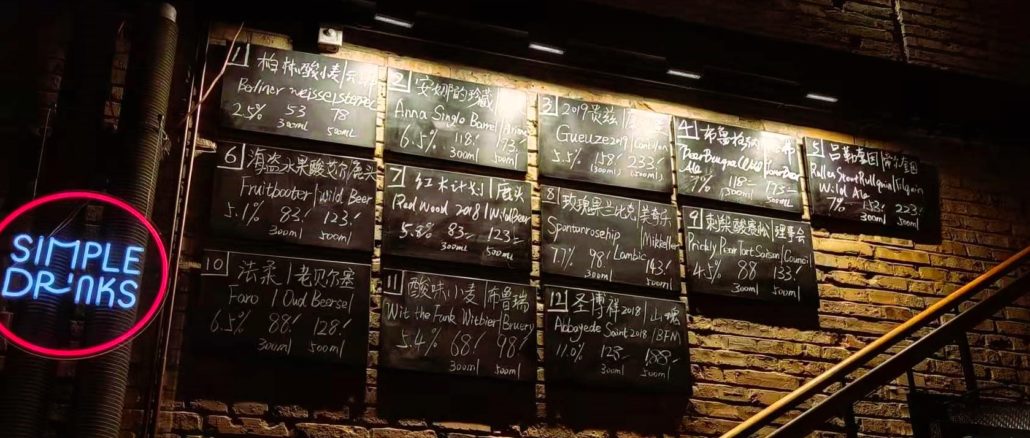 SIMPLE
DRINKS
1 柏林酸小麦
Berliner weisse
2.5% 53 78
300ml 500ml
2 安娜的珍藏
Anna Single Barrel
6.5% 118! 193.-
300ml 500ml
3 2019贵兹
Gueuze2019
5.5% 158! 233!
300ml 500ml
4 布鲁
Ale
7% 118- 175-
300ml 500ml
5
Wild Ale
7% 153! 223!
300ml 500ml
6 海盗水果酸艾尔 鹿头
Fruitbooter | Wild Beer
5.1% 83! 123!
300ml 500ml
7 红木计划 | 鹿头
Red Wood 2018 | Wild Beer
5.8% 83- 123-
300ml 500ml
8 玫瑰果兰比克 | 美奇乐
Spontanrosehip | Mikkeller
7.7% 98! Lambic 143!
300ml 500ml
9 刺梨酸赛松 | 理事会
Prickly Pear Tart Saison | Council
4.5% 88 133!
300ml 500ml
10 法柔 | 老贝尔塞
Faro | Oud Beersel
6.5% 88! 128!
300ml 500ml
11 酸味小麦 | 布鲁瑞
Wit the Funk Witbier | Bruery
5.4% 68! 98!
300ml 500ml
12 圣博祥 2018 | 山魂
Abbayede Saint 2018 | BFM
11.0% 128- 188-
300ml 500ml